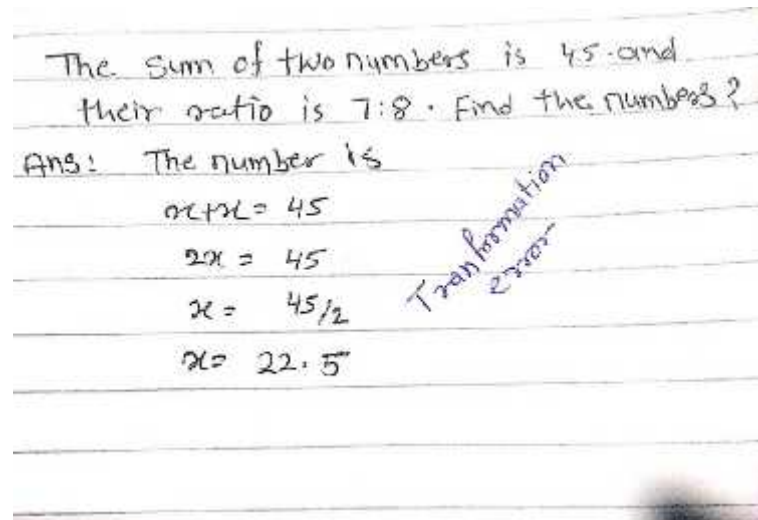 The sum of two numbers is 45. and
their ratio is 7:8. Find the numbers?
Ans: The number is
x+x= 45
2x = 45
x = 45/2
x= 22.5
Tranformation
error